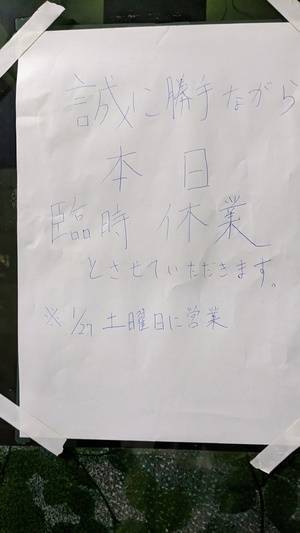 誠に勝手ながら
本日
臨時休業
とさせていただきます。
※1/27 土曜日に営業